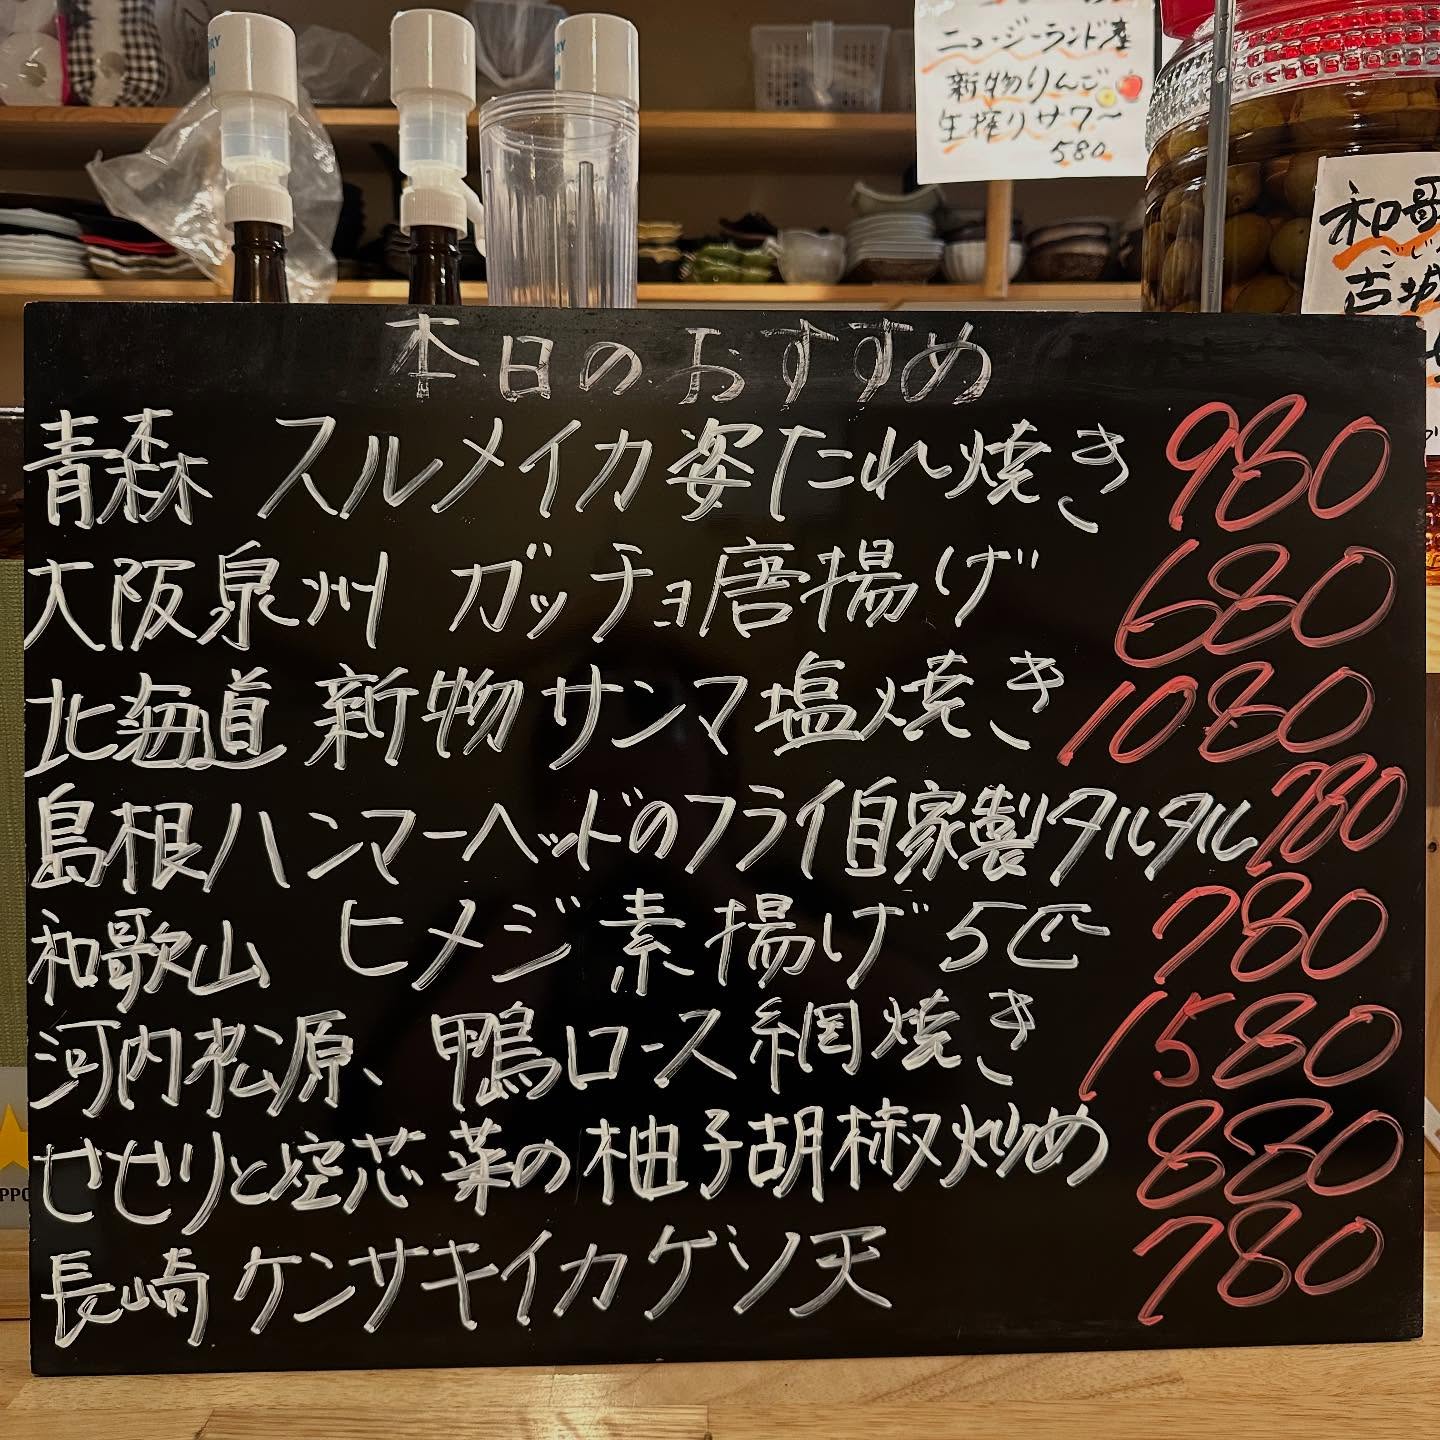 ニュージーランド産
新物りんご
生搾りサワー
580
和歌
古城
本日のおすすめ
青森 スルメイカ姿たれ焼き 980
大阪泉州 ガッチョ唐揚げ 680
北海道 新物サンマ塩焼き 1080
島根ハンマーヘッドのフライ自家製タルタル 780
和歌山 ヒメジ素揚げ5匹 780
河内松原、鴨ロース網焼き 1580
せせりと空芯菜の柚子胡椒炒め 880
長崎ケンサキイカゲソ天 780